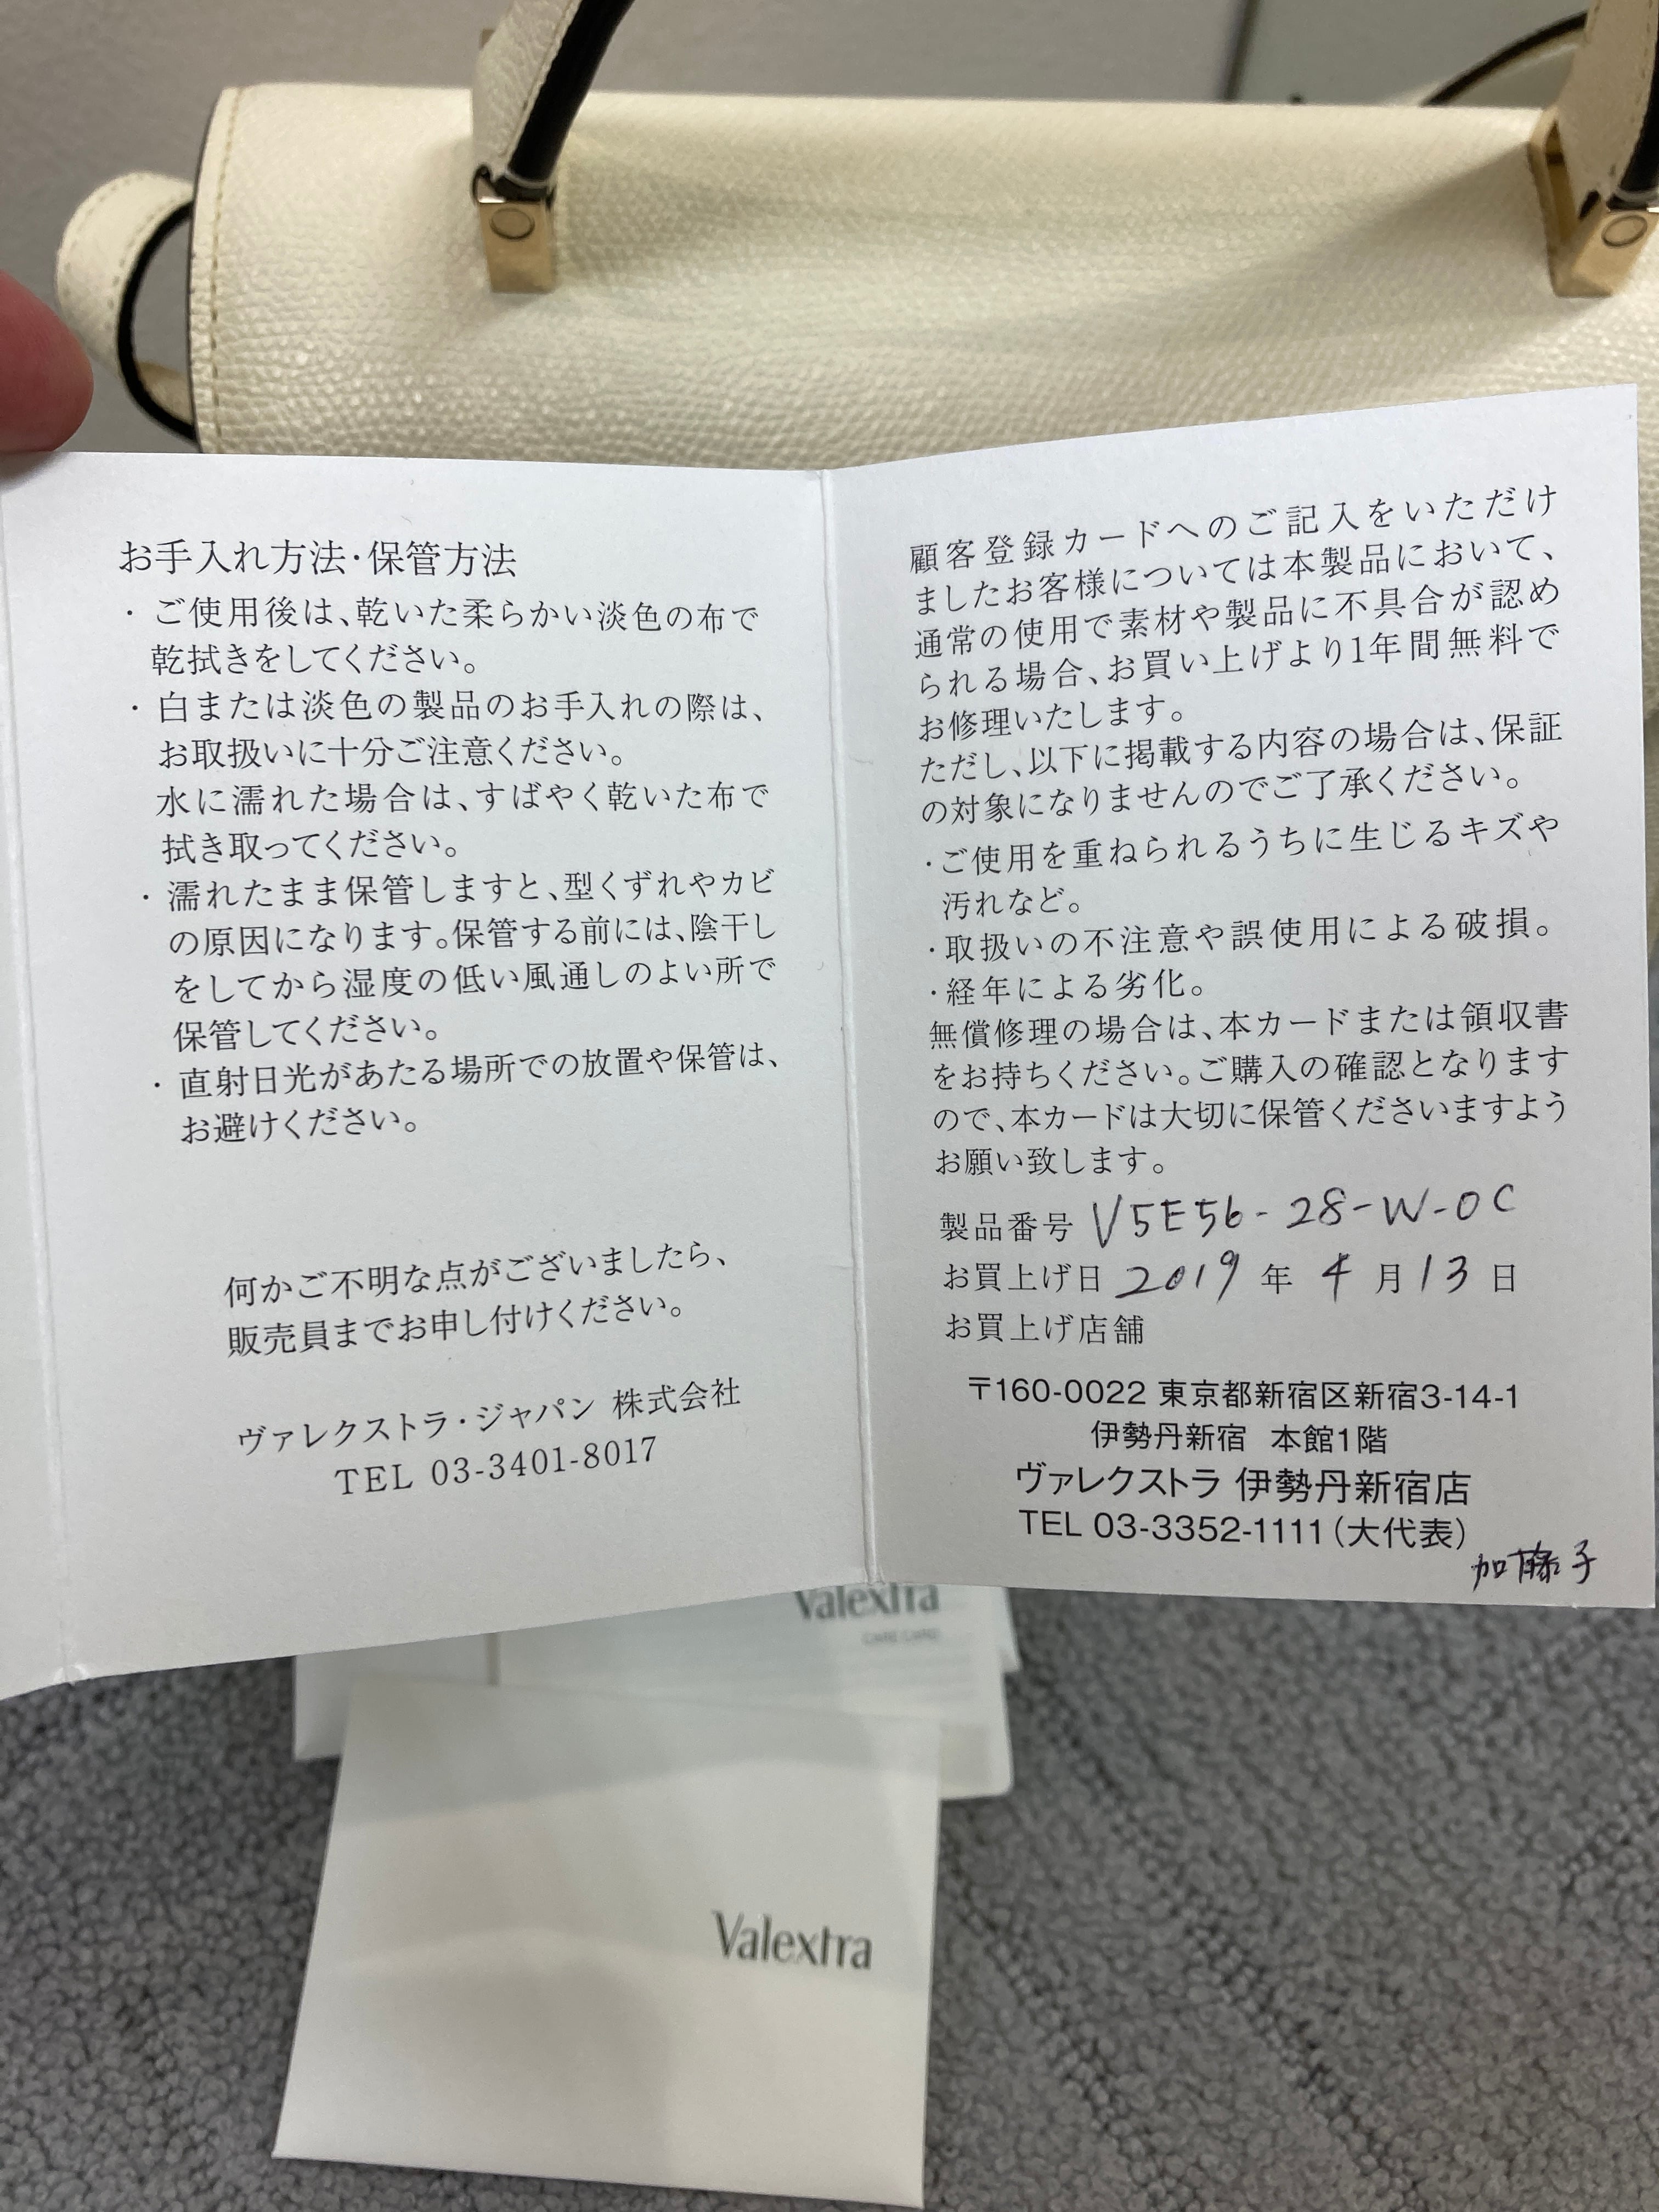 お手入れ方法・保管方法
・ご使用後は、乾いた柔らかい淡色の布で
乾拭きをしてください。
・白または淡色の製品のお手入れの際は、
お取扱いに十分ご注意ください。
水に濡れた場合は、すばやく乾いた布で
拭き取ってください。
・濡れたまま保管しますと、型くずれやカビ
の原因になります。保管する前には、陰干し
をしてから湿度の低い風通しのよい所で
保管してください。
・直射日光があたる場所での放置や保管は、
お避けください。
何かご不明な点がございましたら、
販売員までお申し付けください。
ヴァレクストラ・ジャパン 株式会社
TEL 03-3401-8017
顧客登録カードへのご記入をいただけ
ましたお客様については本製品において、
通常の使用で素材や製品に不具合が認め
られる場合、お買い上げより1年間無料で
お修理いたします。
ただし、以下に掲載する内容の場合は、保証
の対象になりませんのでご了承ください。
・ご使用を重ねられるうちに生じるキズや
汚れなど。
・取扱いの不注意や誤使用による破損。
・経年による劣化。
無償修理の場合は、本カードまたは領収書
をお持ちください。ご購入の確認となります
ので、本カードは大切に保管くださいますよう
お願い致します。
製品番号 V5E56-28-W-OC
お買上げ日 2019 年 4 月 13 日
お買上げ店舗
〒160-0022 東京都新宿区新宿3-14-1
伊勢丹新宿 本館1階
ヴァレクストラ 伊勢丹新宿店
TEL 03-3352-1111（大代表）
Valextra
CARE CARD
Valextra